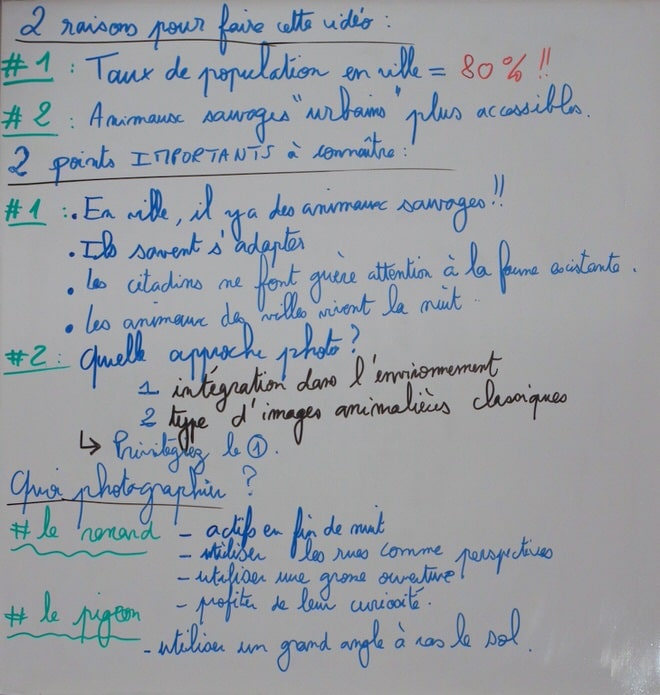 2 raisons pour faire cette vidéo :
#1 : Taux de population en ville = 80% !!
#2 : Animaux sauvages "urbains" plus accessibles.
2 points IMPORTANTS à connaître :
#1 : . En ville, il y a des animaux sauvages !!
. Ils savent s'adapter
. Les citadins ne font guère attention à la faune existante.
. Les animaux des villes vivent la nuit
#2 : Quelle approche photo ?
1 intégration dans l'environnement
2 type d'images animalières classiques
↳ Privilégiez le ①.
Quoi photographier ?
# le renard - actifs en fin de nuit
- utiliser les rues comme perspectives
- utiliser une grosse ouverture
- profiter de leur curiosité.
# le pigeon
- utiliser un grand angle à ras le sol.